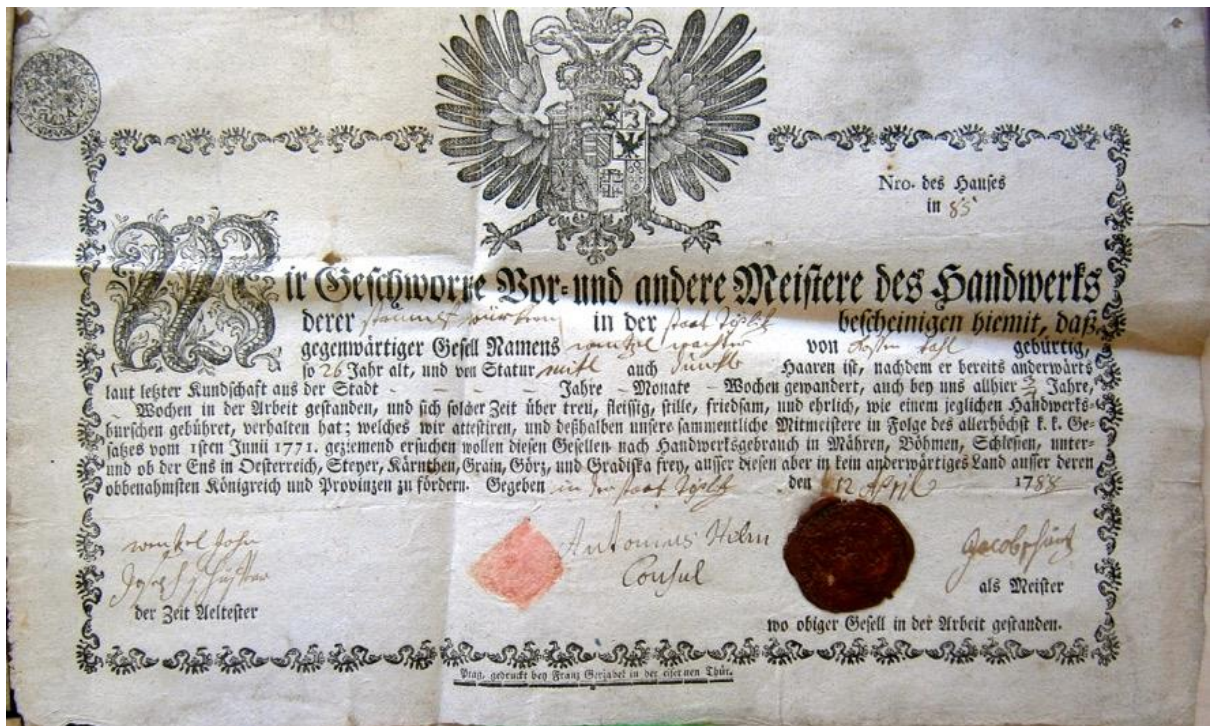 Nro. des Hauses
in 85
Wir Geschworne Vor- und andere Meistere des Handwerks
derer in der bescheinigen hiemit, daß
gegenwärtiger Gesell Namens wentzel von gebürtig,
so 26 Jahr alt, und von Statur mitl auch dunckle Haaren ist, nachdem er bereits anderwärts
laut letzter Kundschaft aus der Stadt - - - Jahre - Monate - Wochen gewandert, auch bey uns allhier Jahre,
- Wochen in der Arbeit gestanden, und sich solcher Zeit über treu, fleissig, stille, friedsam, und ehrlich, wie einem jeglichen Handwerks-
burschen gebühret, verhalten hat; welches wir attestiren, und deßhalben unsere sammentliche Mitmeistere in Folge des allerhöchst k. k. Ge-
satzes vom 1sten Junii 1771. geziemend ersuchen wollen diesen Gesellen nach Handwerksgebrauch in Mähren, Böhmen, Schlesien, unter-
und ob der Ens in Oesterreich, Steyer, Kärnthen, Crain, Görz, und Gradiska frey, ausser diesen aber in kein anderwärtiges Land ausser deren
obbenahmsten Königreich und Provinzen zu fördern. Gegeben in der den 12 April 1788
wentzel John
Joseph
der Zeit Aeltester
Antonius
Consul
Jacob
als Meister
wo obiger Gesell in der Arbeit gestanden.
Prag, gedruckt bey Franz Gerzabek in der eisernen Thür.